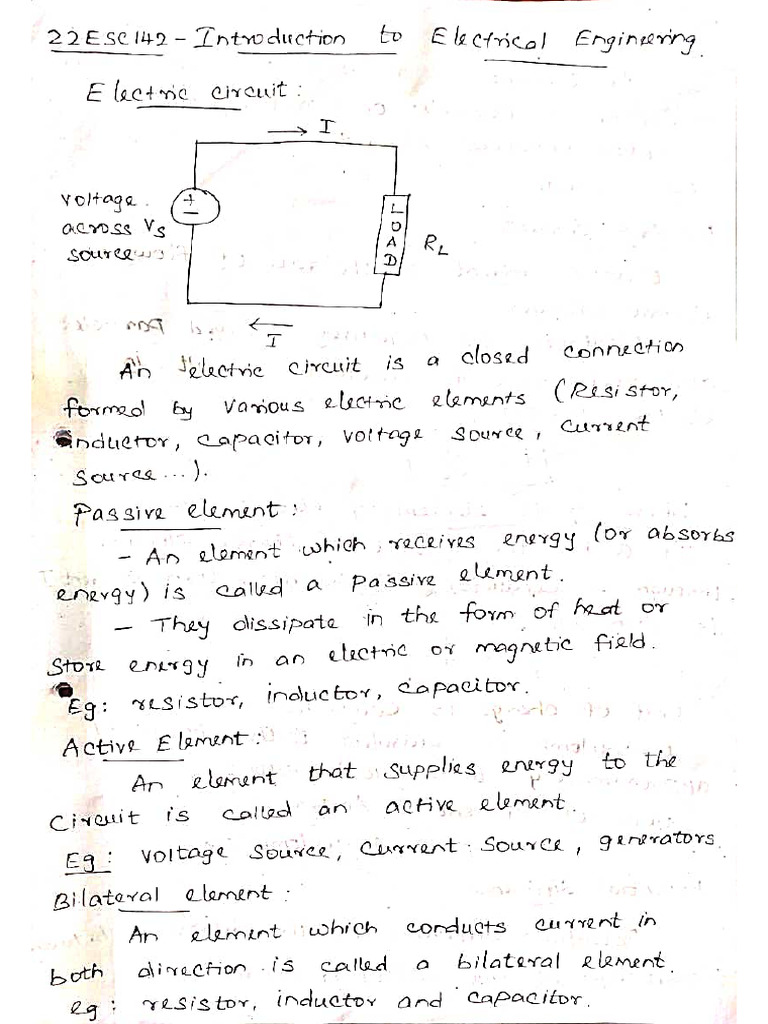 22ESC142 - Introduction to Electrical Engineering
Electric circuit:
I
voltage
across Vs
source
+
-
LOAD
RL
I
An electric circuit is a closed connection
formed by various electric elements (Resistor,
inductor, capacitor, voltage source, current
source...).
Passive element:
- An element which receives energy (or absorbs
energy) is called a passive element.
- They dissipate in the form of heat or
store energy in an electric or magnetic field.
Eg: resistor, inductor, capacitor.
Active Element:
An element that supplies energy to the
circuit is called an active element.
Eg: voltage source, current source, generators
Bilateral element:
An element which conducts current in
both direction is called a bilateral element.
eg: resistor, inductor and capacitor.